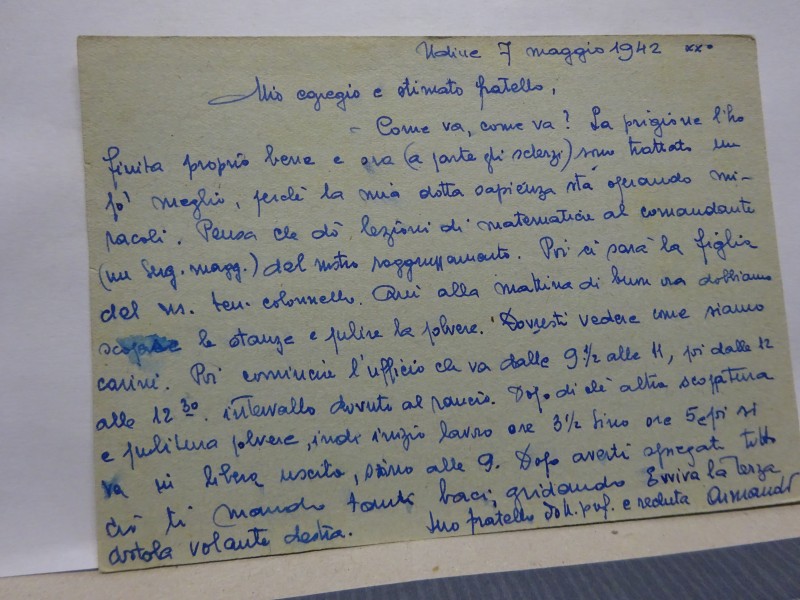 Udine 7 maggio 1942 xx°
Mio egregio e stimato fratello,
- Come va, come va? La prigione l'ho
finita proprio bene e ora (a parte gli scherzi) sono trattato un
po' meglio, perchè la mia dotta sapienza sta operando mi-
racoli. Pensa che dò lezioni di matematica al comandante
(un Serg. magg.) del nostro raggruppamento. Poi ci sarà la figlia
del ns. ten. colonnello. Qui alla mattina di buon ora dobbiamo
scopare le stanze e pulire la polvere. Dovresti vedere come siamo
carini. Poi comincia l'ufficio che va dalle 9 1/2 alle 11, poi dalle 12
alle 12 30 intervallo dovuto al rancio. Dopo di chè altra scopatura
e pulitura polvere, indi inizio lavoro ore 3 1/2 fino ore 5 e poi si
va in libera uscita, sino alle 9. Dopo averti spiegato tutto
ciò ti mando tanti baci, gridando Evviva la Terza
volante destra. tuo fratello dott. prof. e Armando